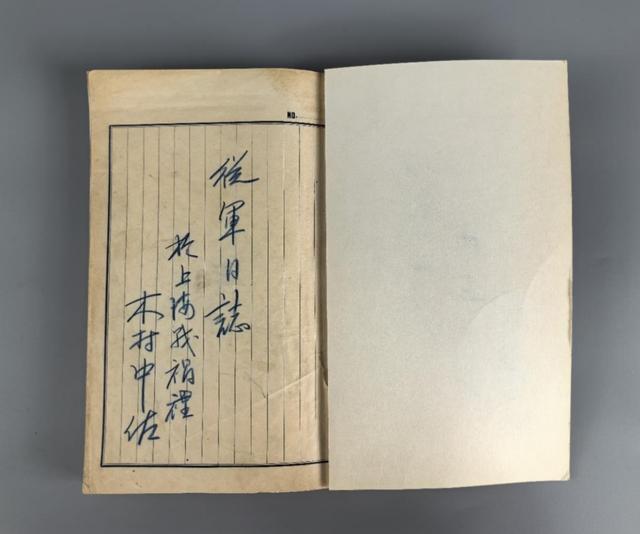 NO.
從軍日誌
於上海戰禍裡
木村中佐